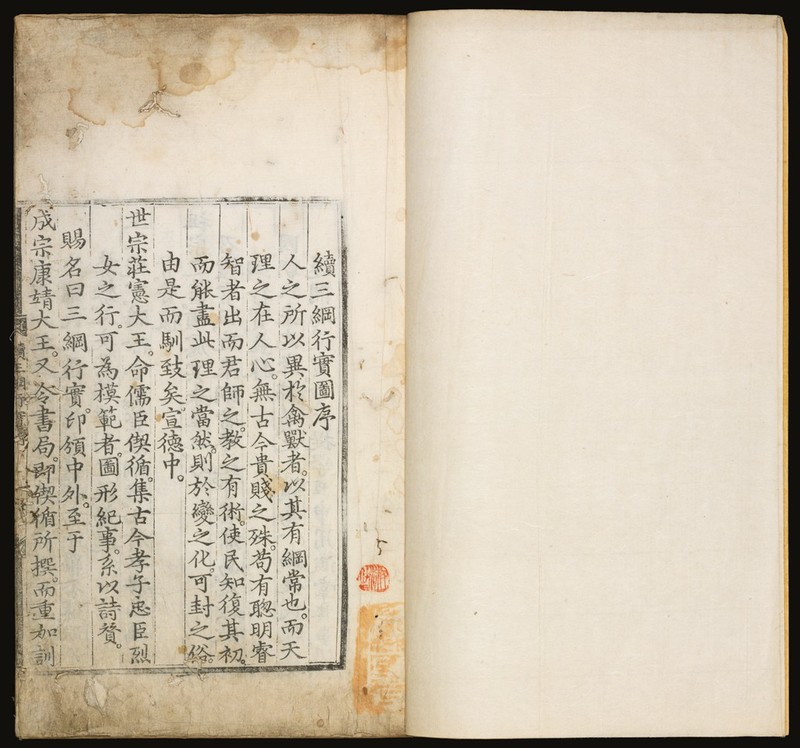 續三綱行實圖序
人之所以異於禽獸者。以其有綱常也。而天
理之在人心。無古今貴賤之殊。苟有聰明睿
智者出而君師之。教之有術。使民知復其初。
而能盡此理之當然。則於變之化。可封之俗。
由是而馴致矣。宣德中。
世宗莊憲大王。命儒臣偰循。集古今孝子忠臣烈
女之行。可為模範者。圖形紀事。系以詩贊。
賜名曰三綱行實。印頒中外。至于
成宗康靖大王。又令書局。卽偰循所撰。而重加訓